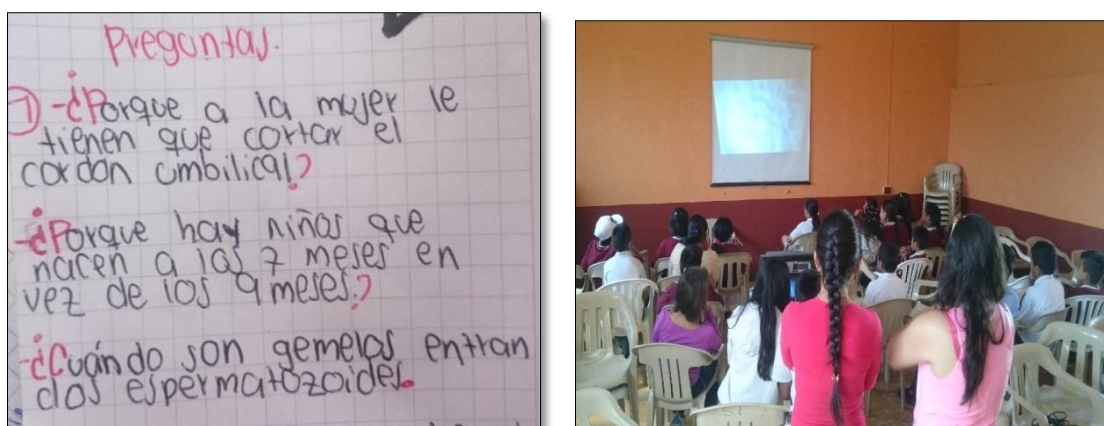 Preguntas.
① -¿Porque a la mujer le
tienen que cortar el
cordon umbilical?
-¿Porque hay niños que
nacen a los 7 meses en
vez de los 9 meses?
-¿Cuándo son gemelos entran
dos espermatozoides.